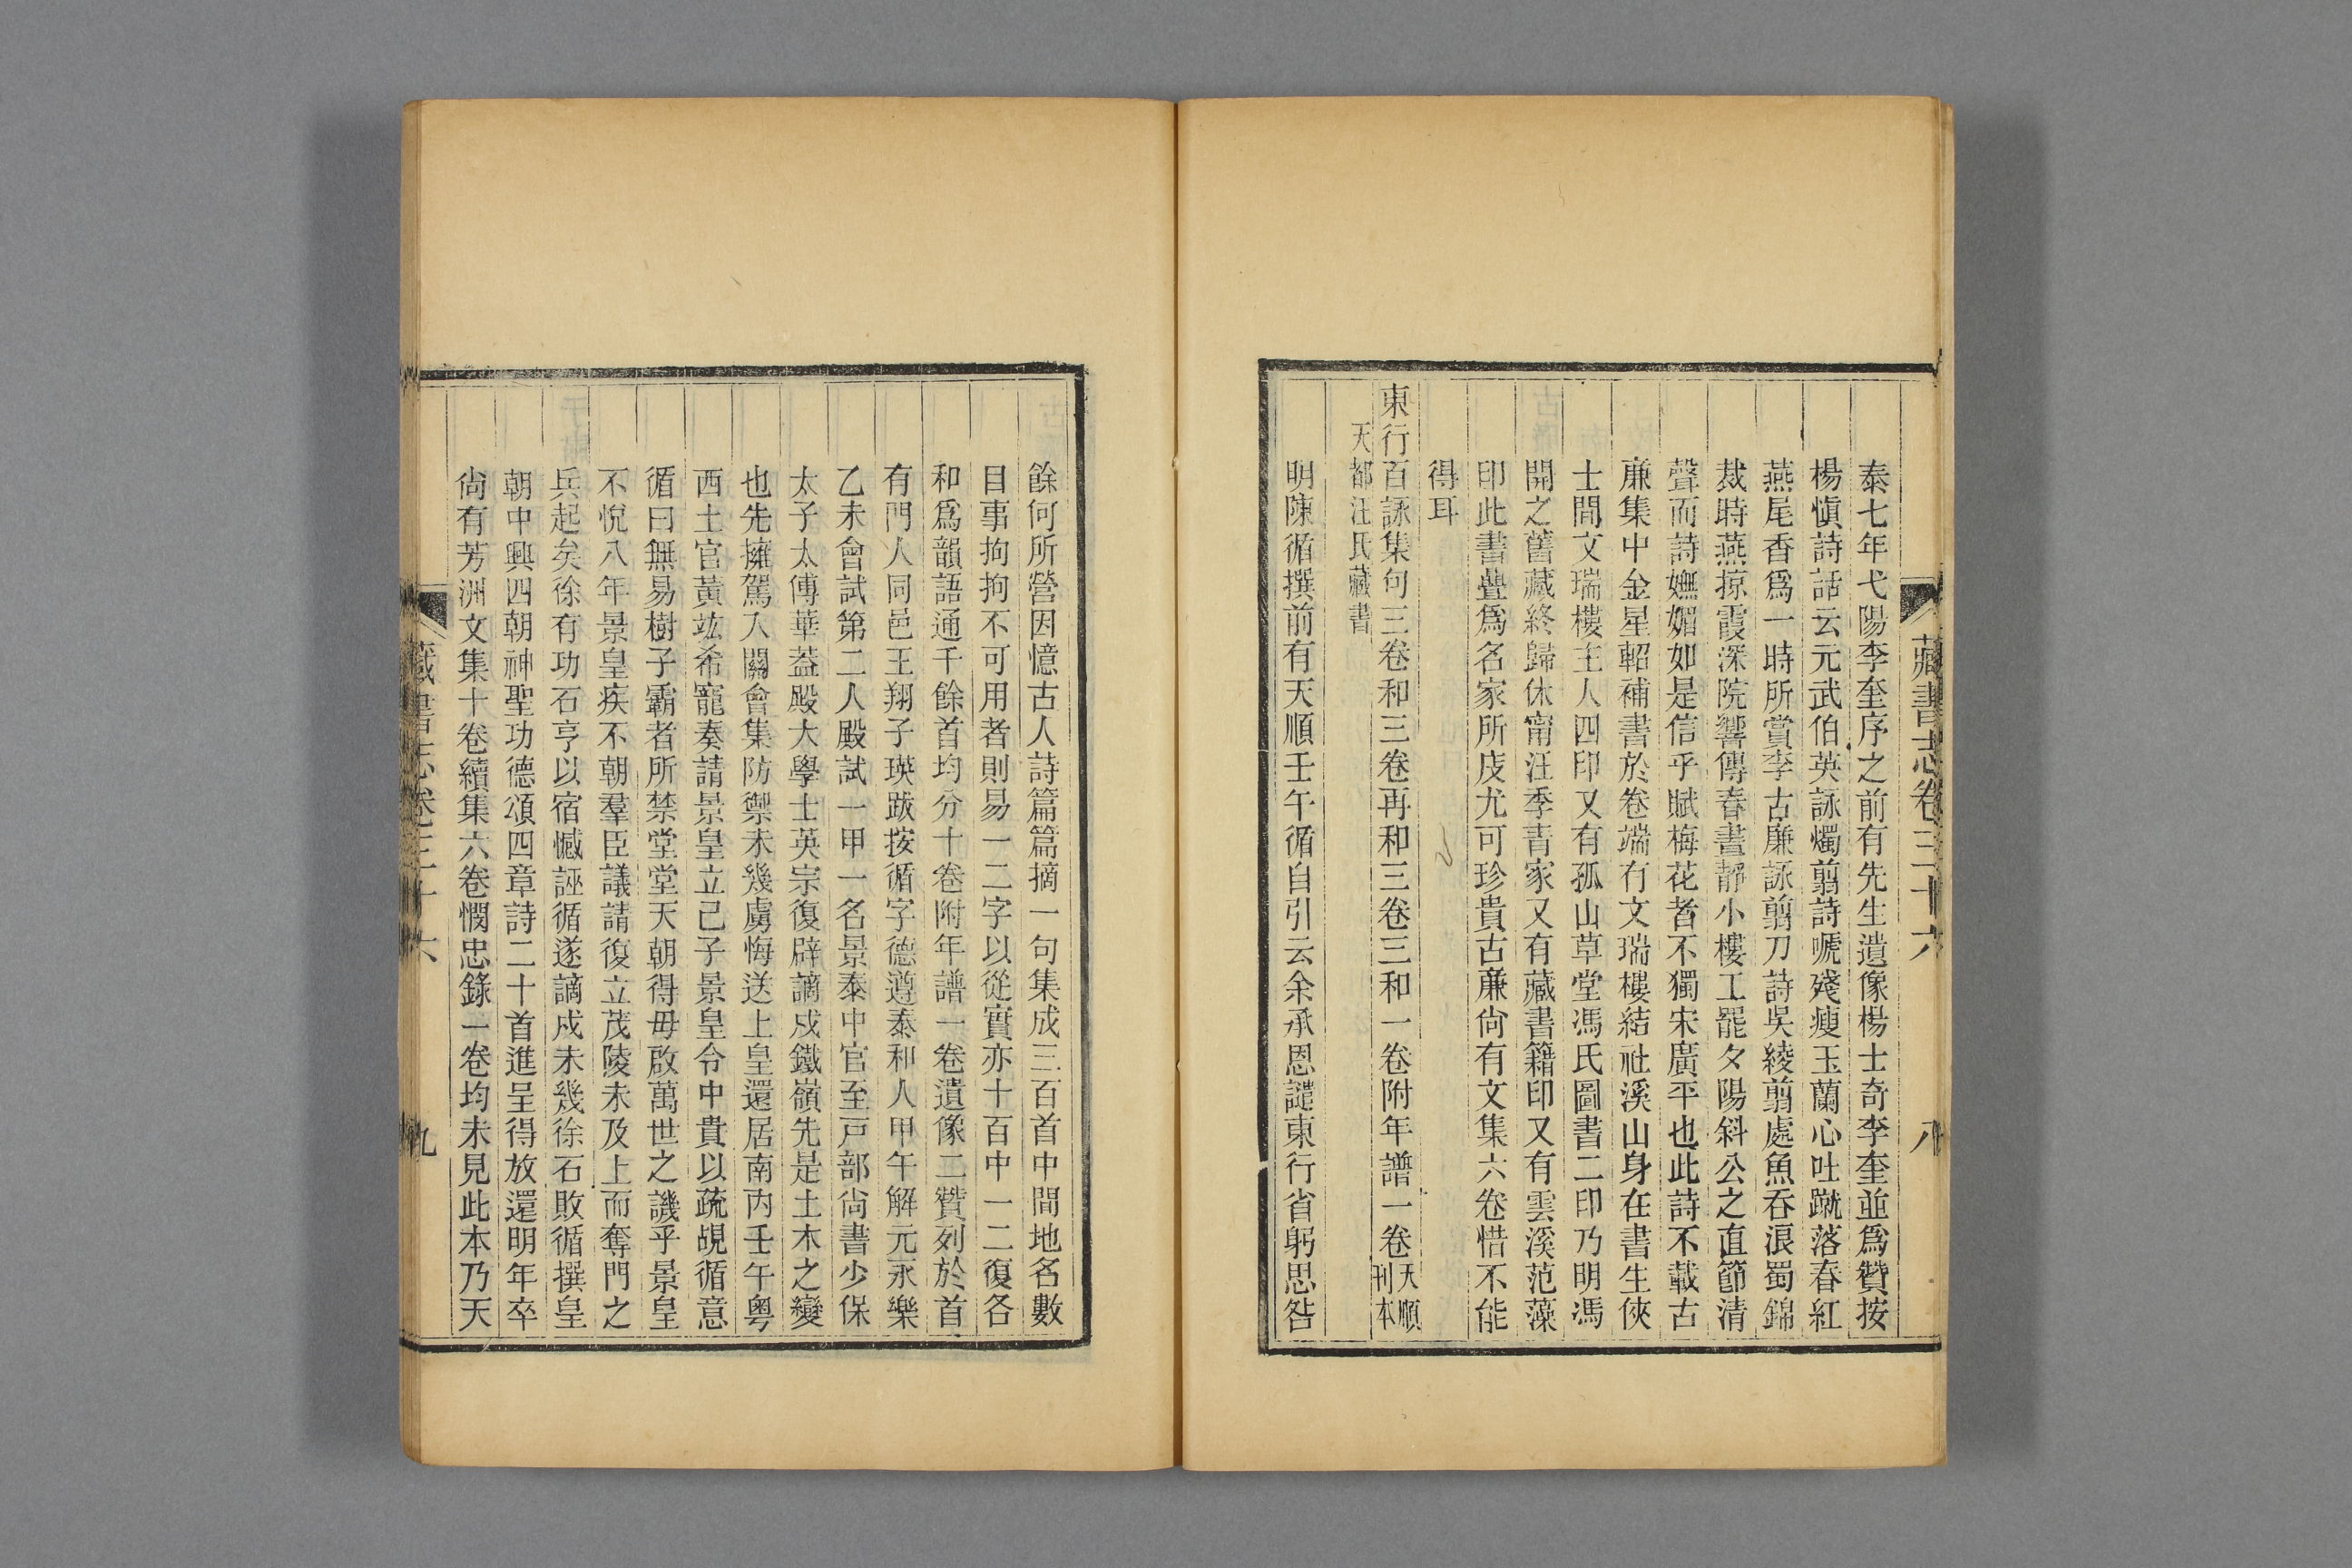 藏書志卷三十六
八
泰七年弋陽李奎序之前有先生遺像楊士奇李奎並爲贊按
楊愼詩話云元武伯英詠燭翦詩嗁殘瘦玉蘭心吐蹴落春紅
燕尾香爲一時所賞李古廉詠翦刀詩吳綾翦處魚吞浪蜀錦
裁時燕掠霞深院響傳春晝靜小樓工罷夕陽斜公之直節清
聲而詩嫵媚如是信乎賦梅花者不獨宋廣平也此詩不載古
廉集中金星軺補書於卷端有文瑞樓結社溪山身在書生俠
士間文瑞樓主人四印又有孤山草堂馮氏圖書二印乃明馮
開之舊藏終歸休甯汪季青家又有藏書籍印又有雲溪范藻
印此書疊爲名家所庋尤可珍貴古廉尙有文集六卷惜不能
得耳
東行百詠集句三卷和三卷再和三卷三和一卷附年譜一卷天順刊本
天都汪氏藏書
明陳循撰前有天順壬午循自引云余承恩譴東行省躬思咎
餘何所營因憶古人詩篇篇摘一句集成三百首中間地名數
目事拘拘不可用者則易一二字以從實亦十百中一二復各
和爲韻語通千餘首均分十卷附年譜一卷遺像二贊列於首
有門人同邑王翔子瑛跋按循字德遵泰和人甲午解元永樂
乙未會試第二人殿試一甲一名景泰中官至戸部尙書少保
太子太傅華葢殿大學士英宗復辟謫戍鐵嶺先是土木之變
也先擁駕入關會集防禦未幾虜悔送上皇還居南內壬午粤
西土官黃竑希寵奏請景皇立己子景皇令中貴以疏覘循意
循曰無易樹子霸者所禁堂堂天朝得毋啟萬世之譏乎景皇
不悅八年景皇疾不朝羣臣議請復立茂陵未及上而奪門之
兵起矣徐有功石亨以宿憾誣循遂謫戍未幾徐石敗循撰皇
朝中興四朝神聖功德頌四章詩二十首進呈得放還明年卒
尙有芳洲文集十卷續集六卷憫忠錄一卷均未見此本乃天
藏書志卷三十六
九